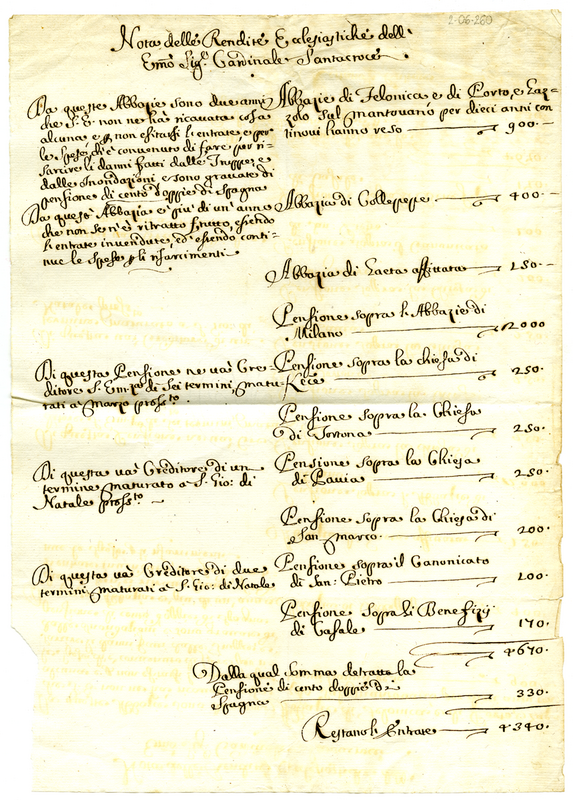 2-06-260
Nota delle Rendite Ecclesiastiche dell'
Emo Sigr Cardinale Santacroce
Da queste Abbazie sono due anni
che S. E. non ne ha ricavata cosa
alcuna e non esitarsi l'entrate e per
le spese, di è convenuto di fare per ri-
sarcire li danni fatti dalle Truppe e
dalle Inondazioni, e sono gravate di
pensione di cento doppie di Spagna
Abbazie di Felonica e di Porto, e Laz-
zolo sul Mantovano per dieci anni con
tinovi hanno reso 900.
Da questa Abbazia è più di un anno
che non se n'è ritratto frutto, essendo
l'entrate invendute, ed essendo conti-
nue le spese gli risarcimenti
Abbazia di Collepepe 400.
Abbazia di Gaeta affittata 150.
Pensione sopra l'Abbazie di
Milano 2000
Di questa Pensione ne va Cre-
ditore S. Emza di sei termini, matu-
rati a Marzo prosso.
Pensione sopra la chiesa di
250.
Pensione sopra la Chiesa
di Tortona 250.
Di questa va Creditore di un
termine maturato a S. Gio: di
Natale prosso.
Pensione sopra la Chiesa
di Pavia 250.
Pensione sopra la Chiesa di
San Marco 200.
Di questa va Creditore di due
termini maturati a S. Gio: di Natale
Pensione sopra il Canonicato
di San Pietro 100.
Pensione sopra li Benefizij
di Casale 170.
4670.
Dalla qual somma detratta la
Pensione di cento doppie di
Spagna 330.
Restano l'Entrate 4340.